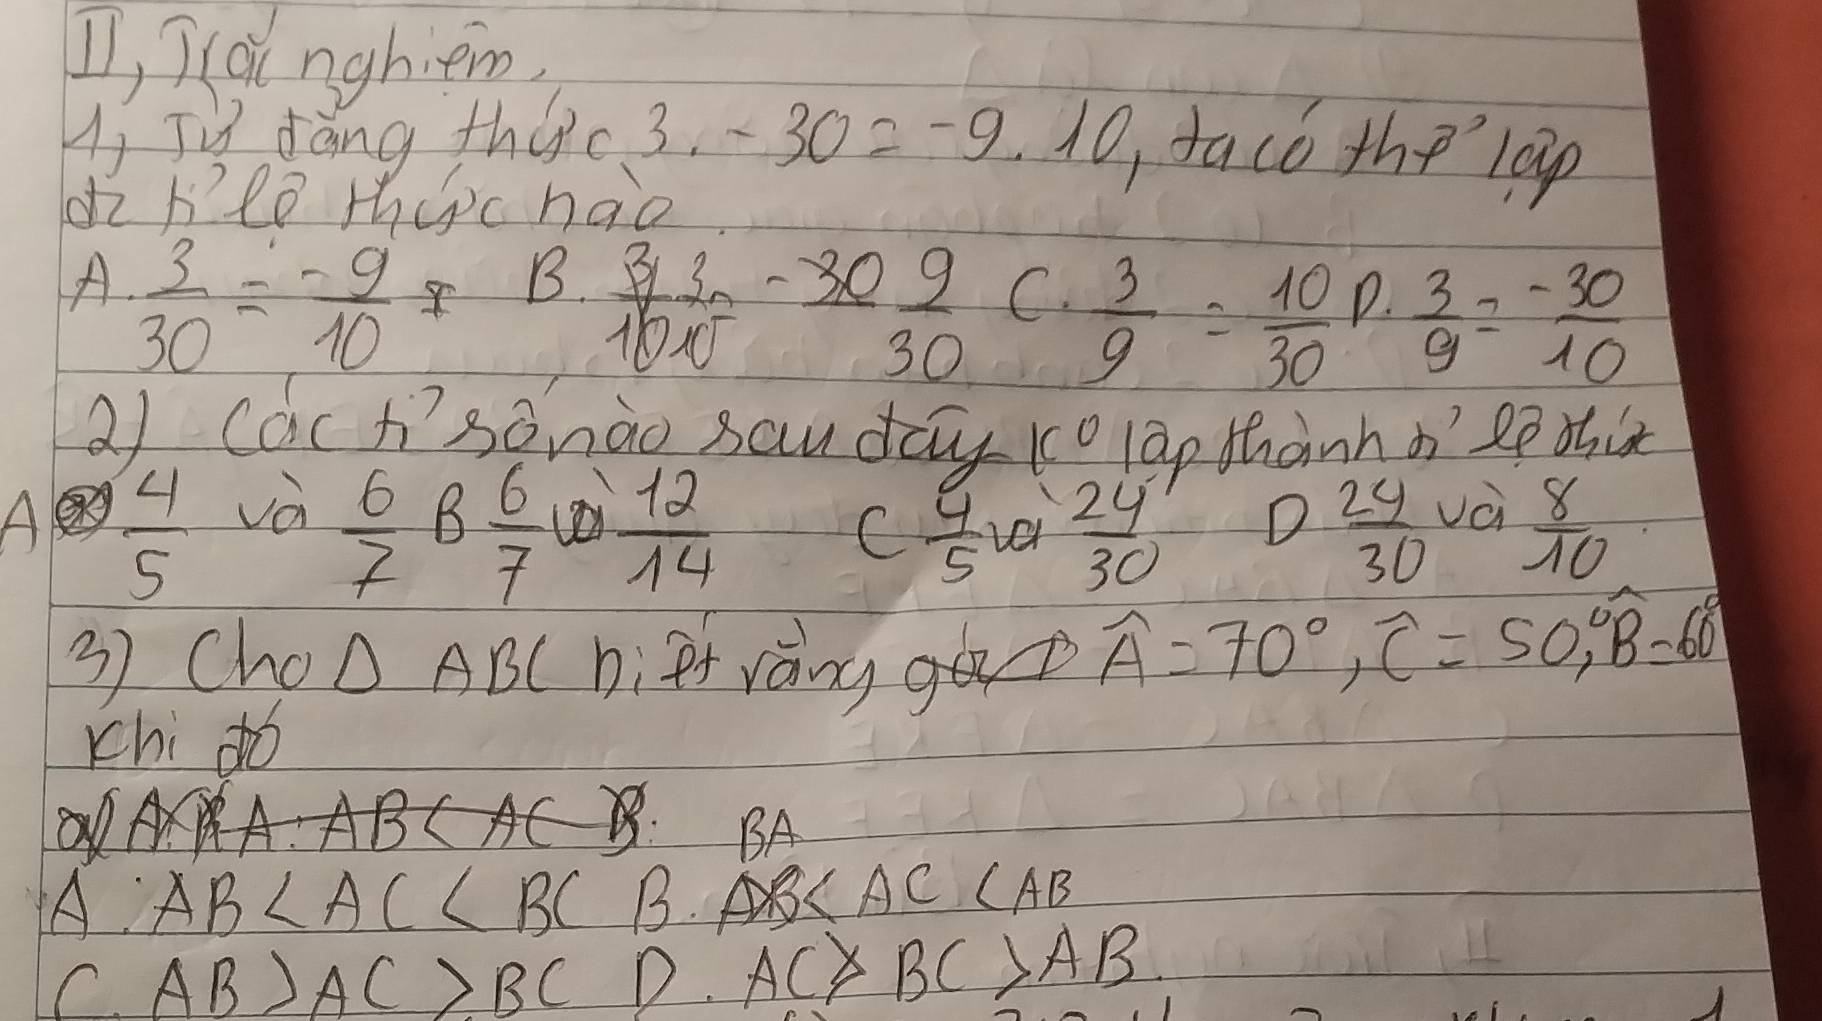 II, Trắc nghiệm,
1, Từ đẳng thức 3. -30 = -9. 10, ta có thể lập
đc tỉ lệ thức nào.
A. 3/30 = -9/10 B. 3/10 = -30/9 9/30 C. 3/9 = 10/30 D. 3/9 = -30/10
2) Các tỉ số nào sau đây ko lập thành tỉ lệ thức
A 4/5 và 6/7 B 6/7 và 12/14 C 4/5 và 24/30 D 24/30 và 8/10
3) Cho Δ ABC biết rằng Â = 70°, Ĉ = 50°, B̂ = 60°
Khi đó
A: AB < AC B.
BA
A. AB < AC < BC B. AB < AC < AB
C. AB > AC > BC D. AC > BC > AB.